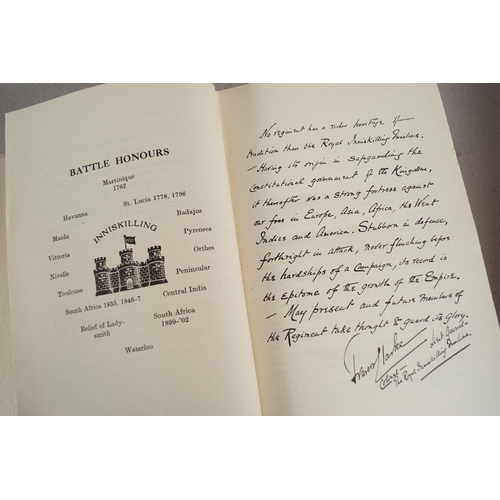 BATTLE HONOURS
Martinique
1762
St. Lucia 1778, 1796
Havanna
Badajoz
INNISKILLING
Maida
Pyrenees
Vittoria
Orthes
Nivelle
Peninsular
Toulouse
Central India
South Africa 1835, 1846-7
Relief of Lady-
smith
South Africa
1899-'02
Waterloo
No regiment has a richer heritage of
tradition than the Royal Inniskilling Fusiliers.
- Having its origin in safeguarding the
Constitutional government of the Kingdom,
it thereafter was a strong fortress against
our foes in Europe, Asia, Africa, the West
Indies and America. Stubborn in defence,
forthright in attack, never flinching before
the hardships of a Campaign, its record is
the epitome of the growth of the Empire.
- May present and future members of
the Regiment take thought & guard its glory.
Travers Clarke
Lieut. General
Colonel
The Royal Inniskilling Fusiliers